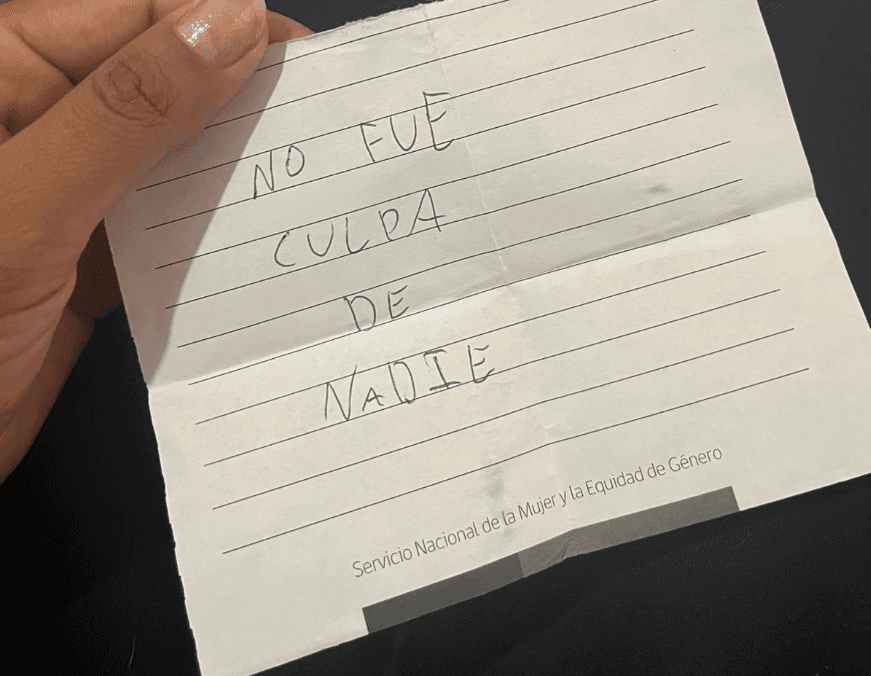 NO FUE
CULPA
DE
NADIE
Servicio Nacional de la Mujer y la Equidad de Género